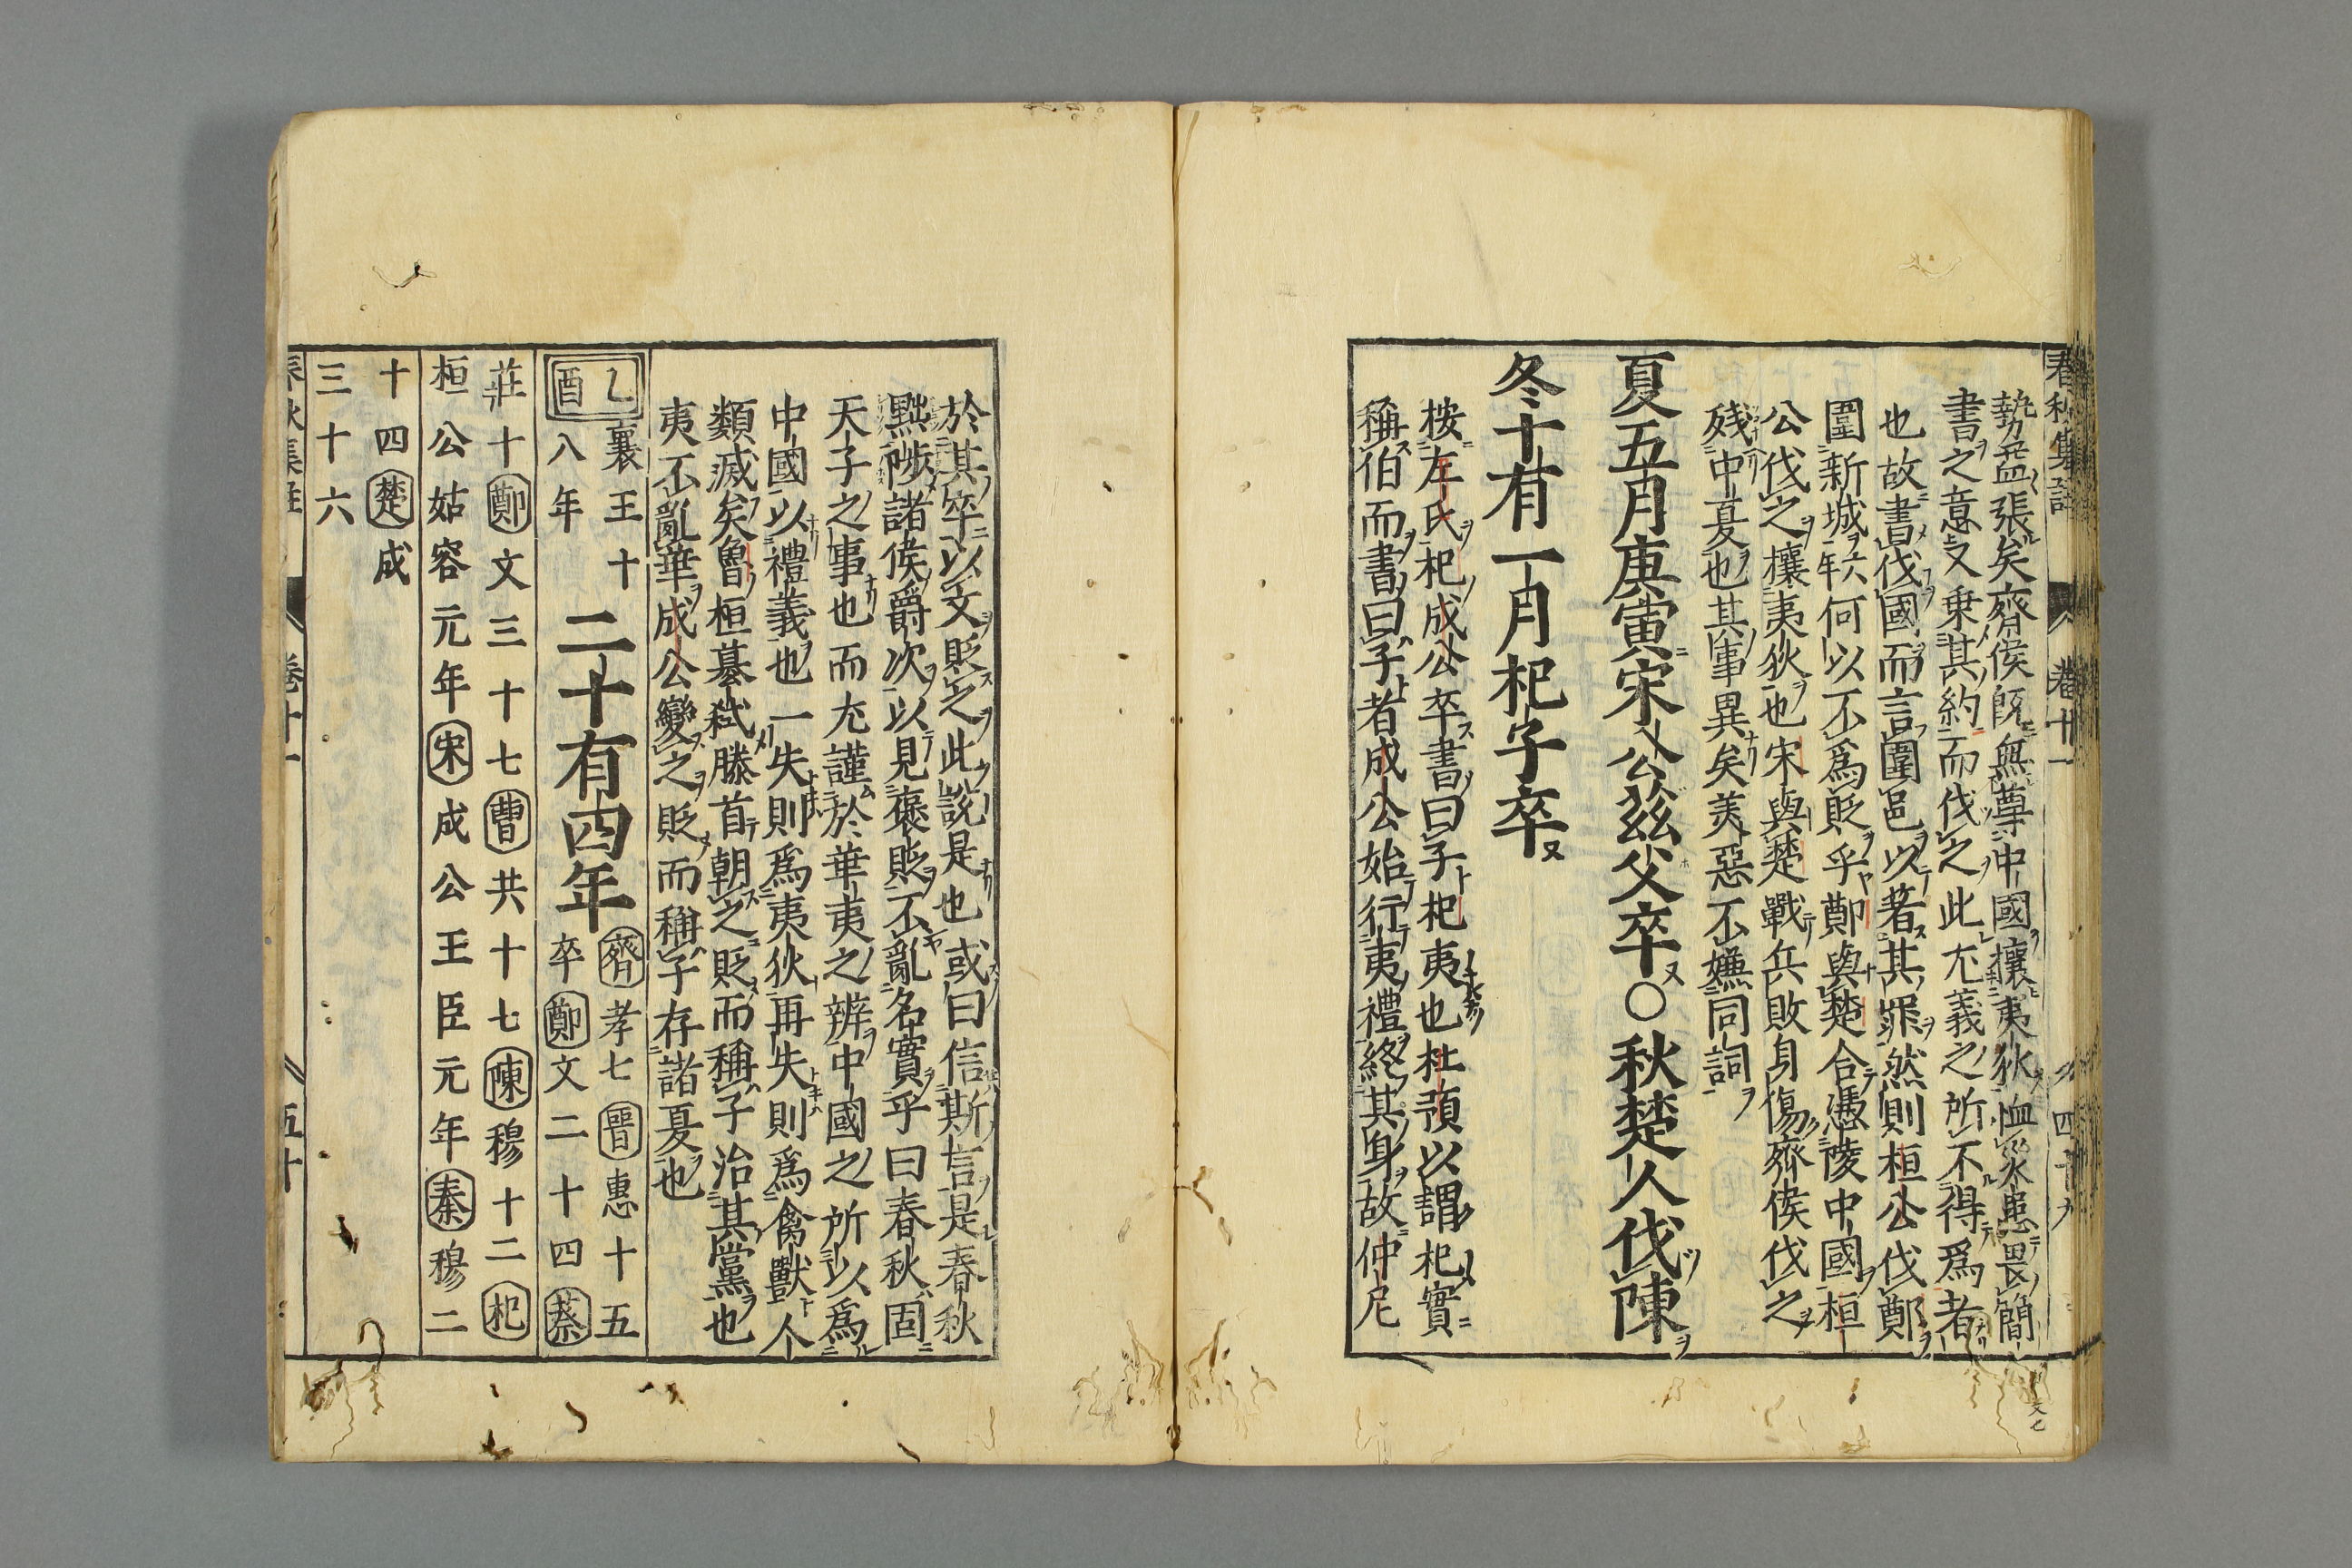 春秋集註 卷十一 四十九
勢益張矣齊侯既無尊中國攘夷狄恤災患畏簡
書之意又乗其約而伐之此尤義之所不得爲者
也故書伐國而言圍邑以著其罪然則桓公伐鄭
圍新城六年何以不爲貶乎鄭與楚合憑陵中國桓
公伐之攘夷狄也宋與楚戰兵敗身傷齊侯伐之
殘中夏也其事異矣美惡不嫌同詞
夏五月庚寅宋公茲父卒○秋楚人伐陳
冬十有一月杞子卒
桉左氏杞成公卒書曰子杞夷也杜預以謂杞實
稱伯而書曰子者成公始行夷禮終其身故仲尼
於其卒以文貶之此説是也或曰信斯言是春秋
黜陟諸侯爵次以見褒貶不亂名實乎曰春秋固
天子之事也而尤謹於華夷之辨中國之所以爲
中國以禮義也一失則爲夷狄再失則爲禽獸人
類滅矣魯桓墓弑滕首朝之貶而稱子治其黨也
夷不亂華成公變之貶而稱子存諸夏也
乙酉 襄王十八年 二十有四年 齊孝七 晉惠十五卒 鄭文二十四 蔡
莊十 鄭文三十七 曹共十七 陳穆十二 杞
桓公姑容元年 宋成公王臣元年 秦穆二
十四 楚成
三十六
春秋集註 卷十一 五十